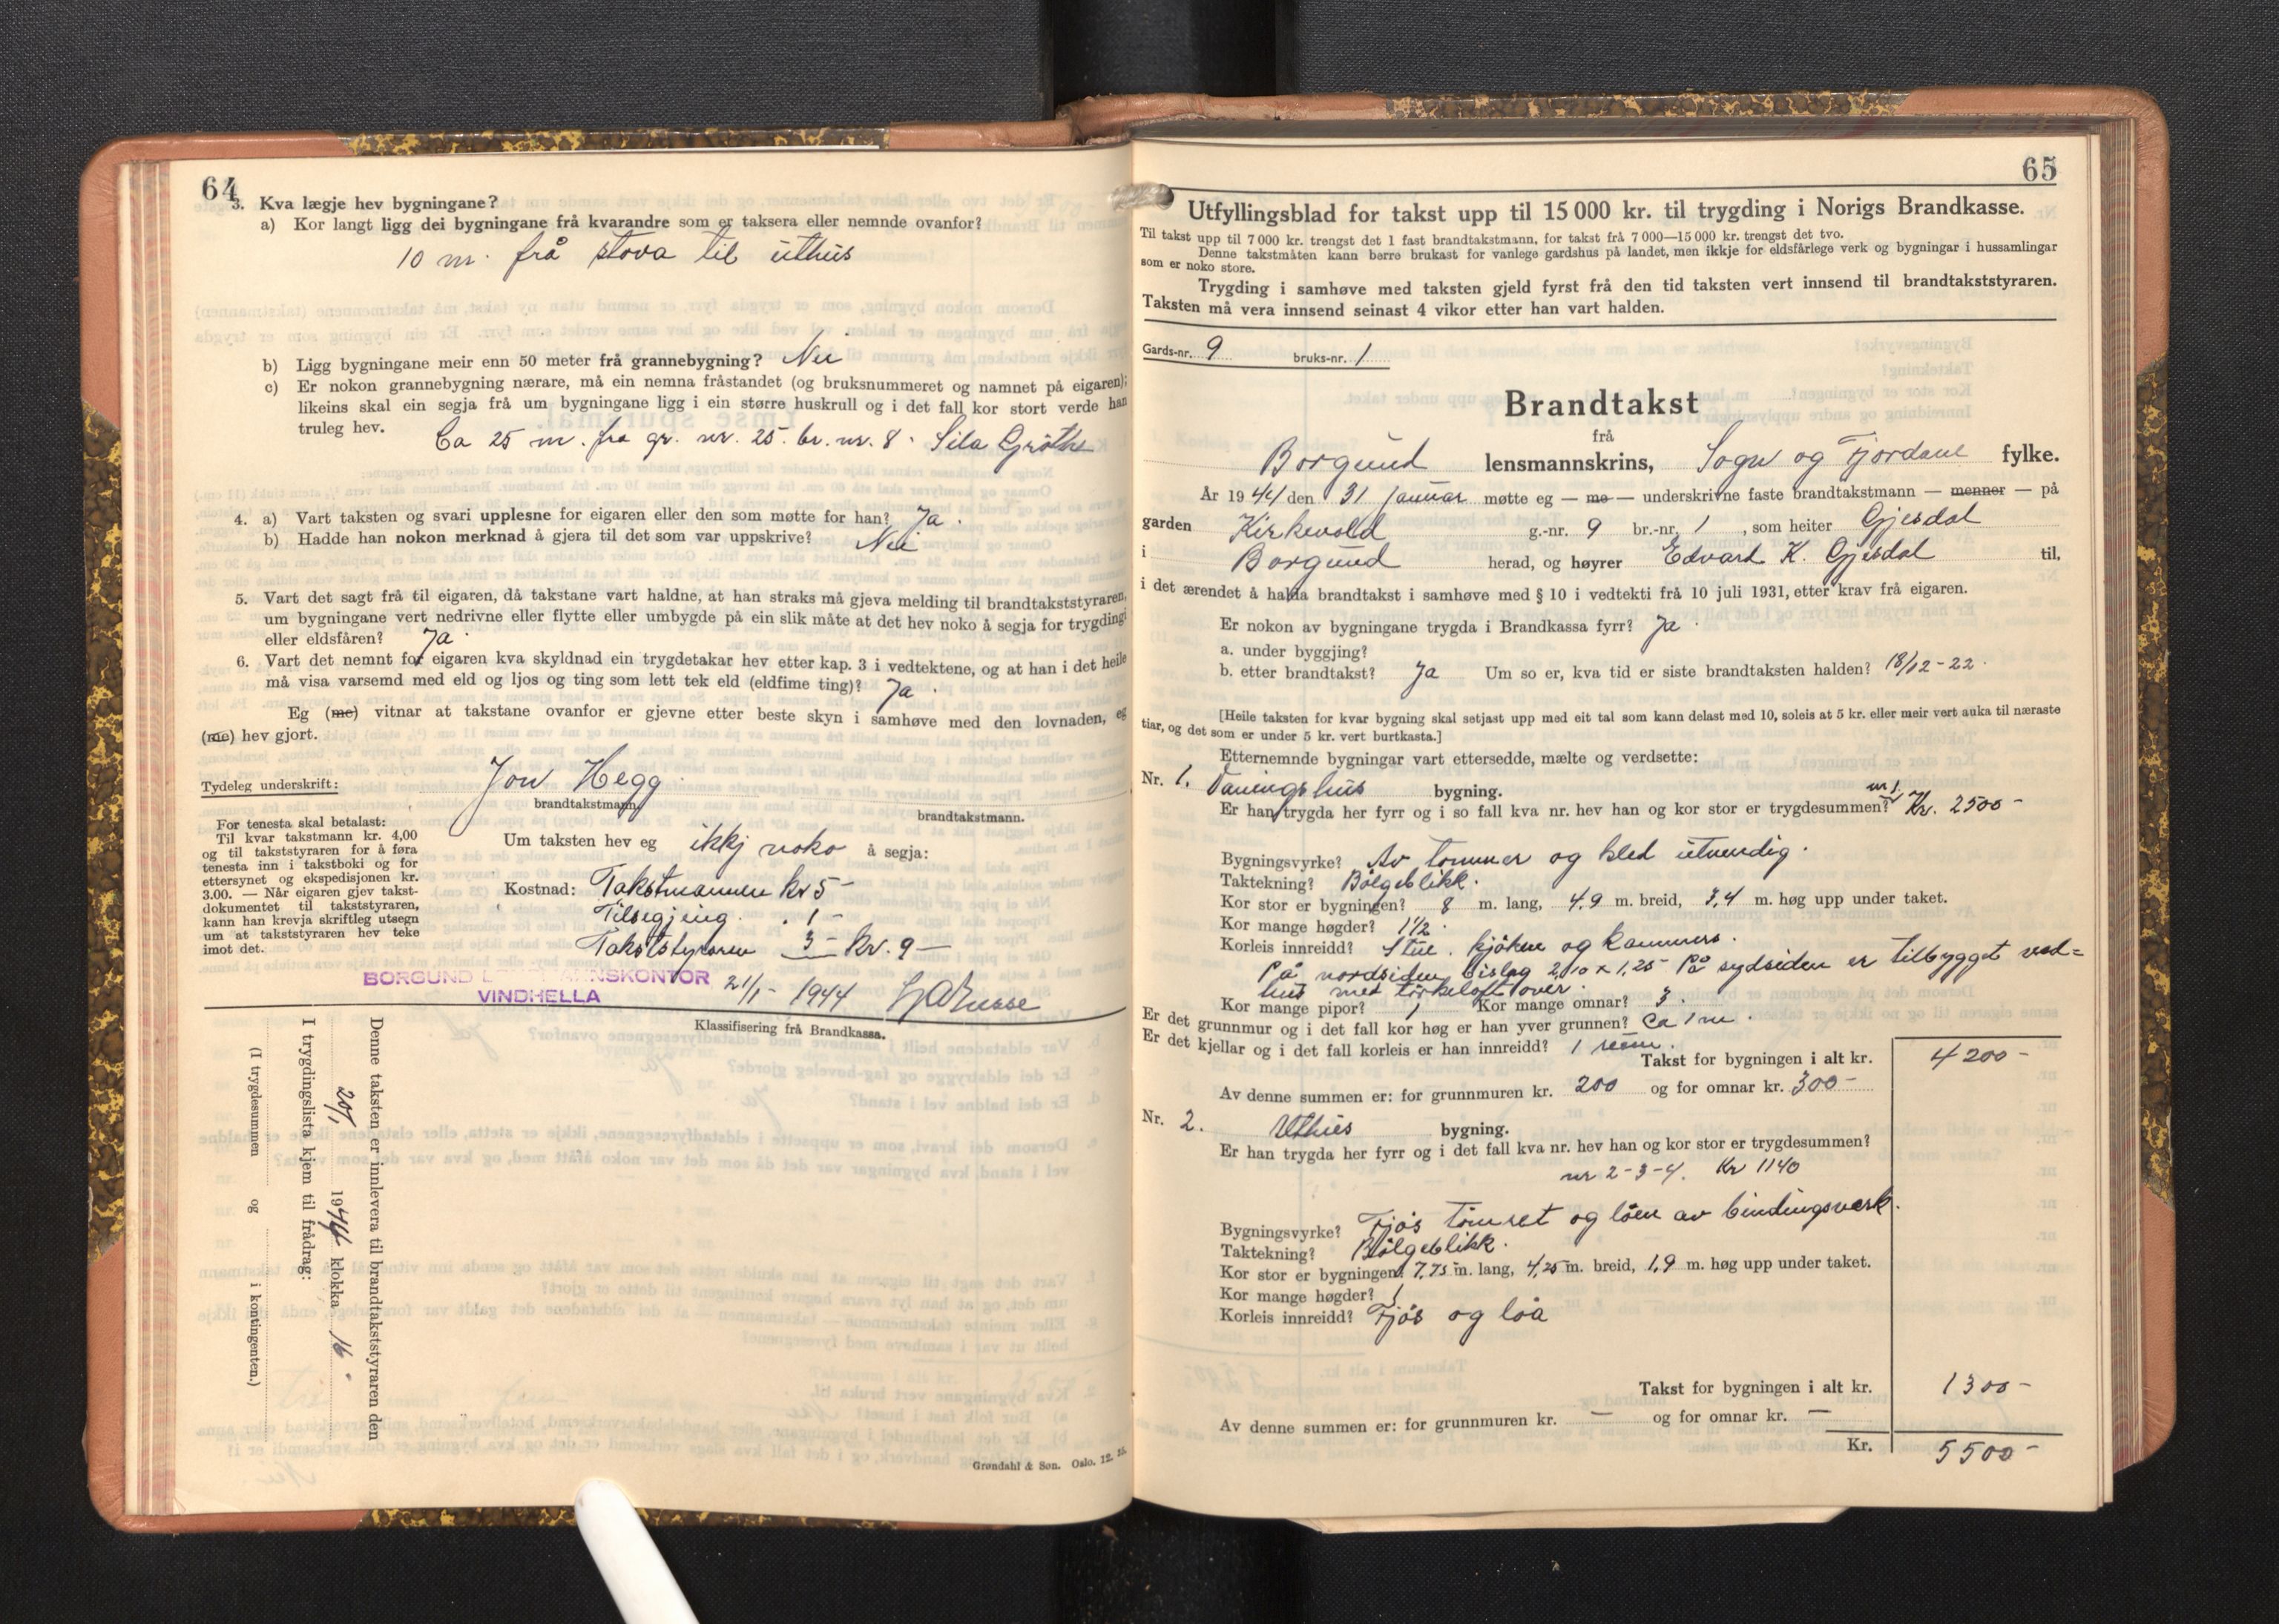 64
3. Kva lægje hev bygningane?
a) Kor langt ligg dei bygningane frå kvarandre som er taksera eller nemnde ovanfor?
10 m. frå stova til uthus
b) Ligg bygningane meir enn 50 meter frå grannebygning? Nei
c) Er nokon grannebygning nærare, må ein nemna fråstandet (og bruksnummeret og namnet på eigaren);
likeins skal ein segja frå um bygningane ligg i ein større huskrull og i det fall kor stort verde han
truleg hev.
Ca 25 m. fra gr. nr. 25. br. nr. 8.
4. a) Vart taksten og svari upplesne for eigaren eller den som møtte for han? Ja.
b) Hadde han nokon merknad å gjera til det som var uppskrive? Nei
5. Vart det sagt frå til eigaren, då takstane vart haldne, at han straks må gjeva melding til brandtakststyraren,
um bygningane vert nedrivne eller flytte eller umbygde på ein slik måte at det hev noko å segja for trygdingi
eller eldsfåren? Ja.
6. Vart det nemnt for eigaren kva skyldnad ein trygdetakar hev etter kap. 3 i vedtektene, og at han i det heile
må visa varsemd med eld og ljos og ting som lett tek eld (eldfime ting)? Ja.
Eg (me) vitnar at takstane ovanfor er gjevne etter beste skyn i samhøve med den lovnaden, eg
(me) hev gjort.
Tydeleg underskrift: Jon Hegg
brandtakstmann. brandtakstmann.
For tenesta skal betalast:
Til kvar takstmann kr. 4,00
og til takststyraren for å føra
tenesta inn i takstboki og for
ettersynet og ekspedisjonen kr.
3.00. — Når eigaren gjev takst-
dokumentet til takststyraren,
kann han krevja skriftleg utsegn
um at takststyraren hev teke
imot det.
Um taksten hev eg ikkj noko å segja:
Kostnad: Takstmannen kr 5-
Tilsegjeing. . 1 -
Takststyraren 3- Kr. 9-
BORGUND LENSMANNSKONTOR
VINDHELLA
21/1- 1944
Klassifisering frå Brandkassa.
Denne taksten er innlevera til brandtakststyraren den
20/1 1944 klokka 16.
I trygdingslista kjem til frådrag:
(I trygdesummen og i kontingenten.)
Grøndahl & Søn. Oslo. 12. 35.
65
Utfyllingsblad for takst upp til 15 000 kr. til trygding i Norigs Brandkasse.
Til takst upp til 7 000 kr. trengst det 1 fast brandtakstmann, for takst frå 7 000—15 000 kr. trengst det tvo.
Denne takstmåten kann berre brukast for vanlege gardshus på landet, men ikkje for eldsfårlege verk og bygningar i hussamlingar
som er noko store.
Trygding i samhøve med taksten gjeld fyrst frå den tid taksten vert innsend til brandtakststyraren.
Taksten må vera innsend seinast 4 vikor etter han vart halden.
Gards-nr. 9 bruks-nr. 1
Brandtakst
frå
Borgund lensmannskrins, Sogn og Fjordane fylke.
År 1944 den 31 januar møtte eg — me — underskrivne faste brandtakstmann — menner — på
garden Kirkevold g.-nr. 9 br.-nr. 1, som heiter Gjesdal
i Borgund herad, og høyrer Edvard K. Gjesdal til,
i det ærendet å halda brandtakst i samhøve med § 10 i vedtekti frå 10 juli 1931, etter krav frå eigaren.
Er nokon av bygningane trygda i Brandkassa fyrr? Ja.
a. under byggjing?
b. etter brandtakst? Ja Um so er, kva tid er siste brandtaksten halden? 18/12-22.
[Heile taksten for kvar bygning skal setjast upp med eit tal som kann delast med 10, soleis at 5 kr. eller meir vert auka til næraste
tiar, og det som er under 5 kr. vert burtkasta.]
Etternemnde bygningar vart ettersedde, mælte og verdsette:
Nr. 1. Våningshus bygning.
Er han trygda her fyrr og i so fall kva nr. hev han og kor stor er trygdesummen? nr 1 Kr. 2500-
Bygningsvyrke? Av tømmer og kled utvendig.
Taktekning? Bølgeblikk.
Kor stor er bygningen? 8 m. lang, 4.9 m. breid, 3,4 m. høg upp under taket.
Kor mange høgder? 1½.
Korleis innreidd? Stue. kjøken og kammers.
På nordsiden bislag 2,10 x 1,25 På sydsiden er tilbygget ved=
hus med tørkeloft over.
Kor mange pipor? 1 Kor mange omnar? 3.
Er det grunnmur og i det fall kor høg er han yver grunnen? Ca 1 m.
Er det kjellar og i det fall korleis er han innreidd? 1 rum.
Takst for bygningen i alt kr. 4200-
Av denne summen er: for grunnmuren kr. 200 og for omnar kr. 300-
Nr. 2. Uthus bygning.
Er han trygda her fyrr og i det fall kva nr. hev han og kor stor er trygdesummen?
nr 2-3-4. Kr 1140
Bygningsvyrke? Fjøs tømret og løen av bindingsverk.
Taktekning? Bølgeblikk.
Kor stor er bygningen? 7,75 m. lang, 4,25 m. breid, 1,9 m. høg upp under taket.
Kor mange høgder? 1
Korleis innreidd? Fjøs og løa
Takst for bygningen i alt kr. 1300-
Av denne summen er: for grunnmuren kr. — og for omnar kr. —
Kr. 5500-